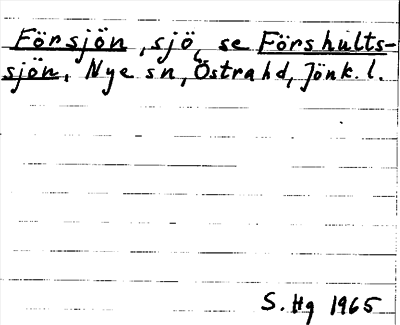 Försjön, sjö, se Förshults-
sjön, Nye sn, Östra hd, Jönk. l.
S. Hg 1965